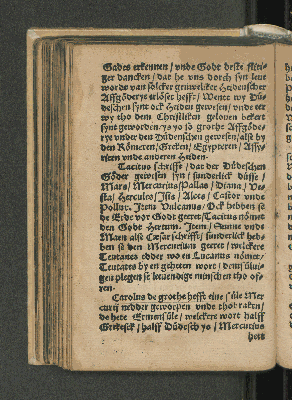 Gades erkennen / vnde Godt deste flitiger
ger dancken / dat he vns dorch syn leue
worde van solcker gruweliker Heidenscher
Affgöderye erlöset hefft / Wente wy Dü-
deschen synt ock Heiden gewesen / vnde eer
wy tho dem Christliken gelouen bekert
synt geworden / ys yo so grothe Affgöde
rye vnder den Düdeschen gewesen / alse by
den Römeren / Greken / Egypteren / Assy
rien vnde anderen Heiden.
Tacitus schrifft / dat der Düdeschen
Göder gewesen syn / sünderlick düsse /
Mars / Mercurius / Pallas / Diana / Ve-
sta / Hercules / Isis / Alces / Castor vnde
Pollux. Item Vulcanus / Ock hebben se
de Erde vor Godt geeret / Tacitus nömet
den Godt Hertum. Item / Sunne vnde
Maen alse Cæsar schrifft / sünderlick heb-
ben se den Mercurium geeret / welckere
Teutanes edder wo en Lucanus nömet /
Teutates by en geheten wort / dem süluigen
gen plegen se leuendige minschen tho of-
feren.
Carolus de grothe hefft eine süle Mer
curij nedder geworpen vnde thobraken /
de hete Ermensüle / welckere wort halff
Grekesck / halff Düdesch ys / Mercurius
hett